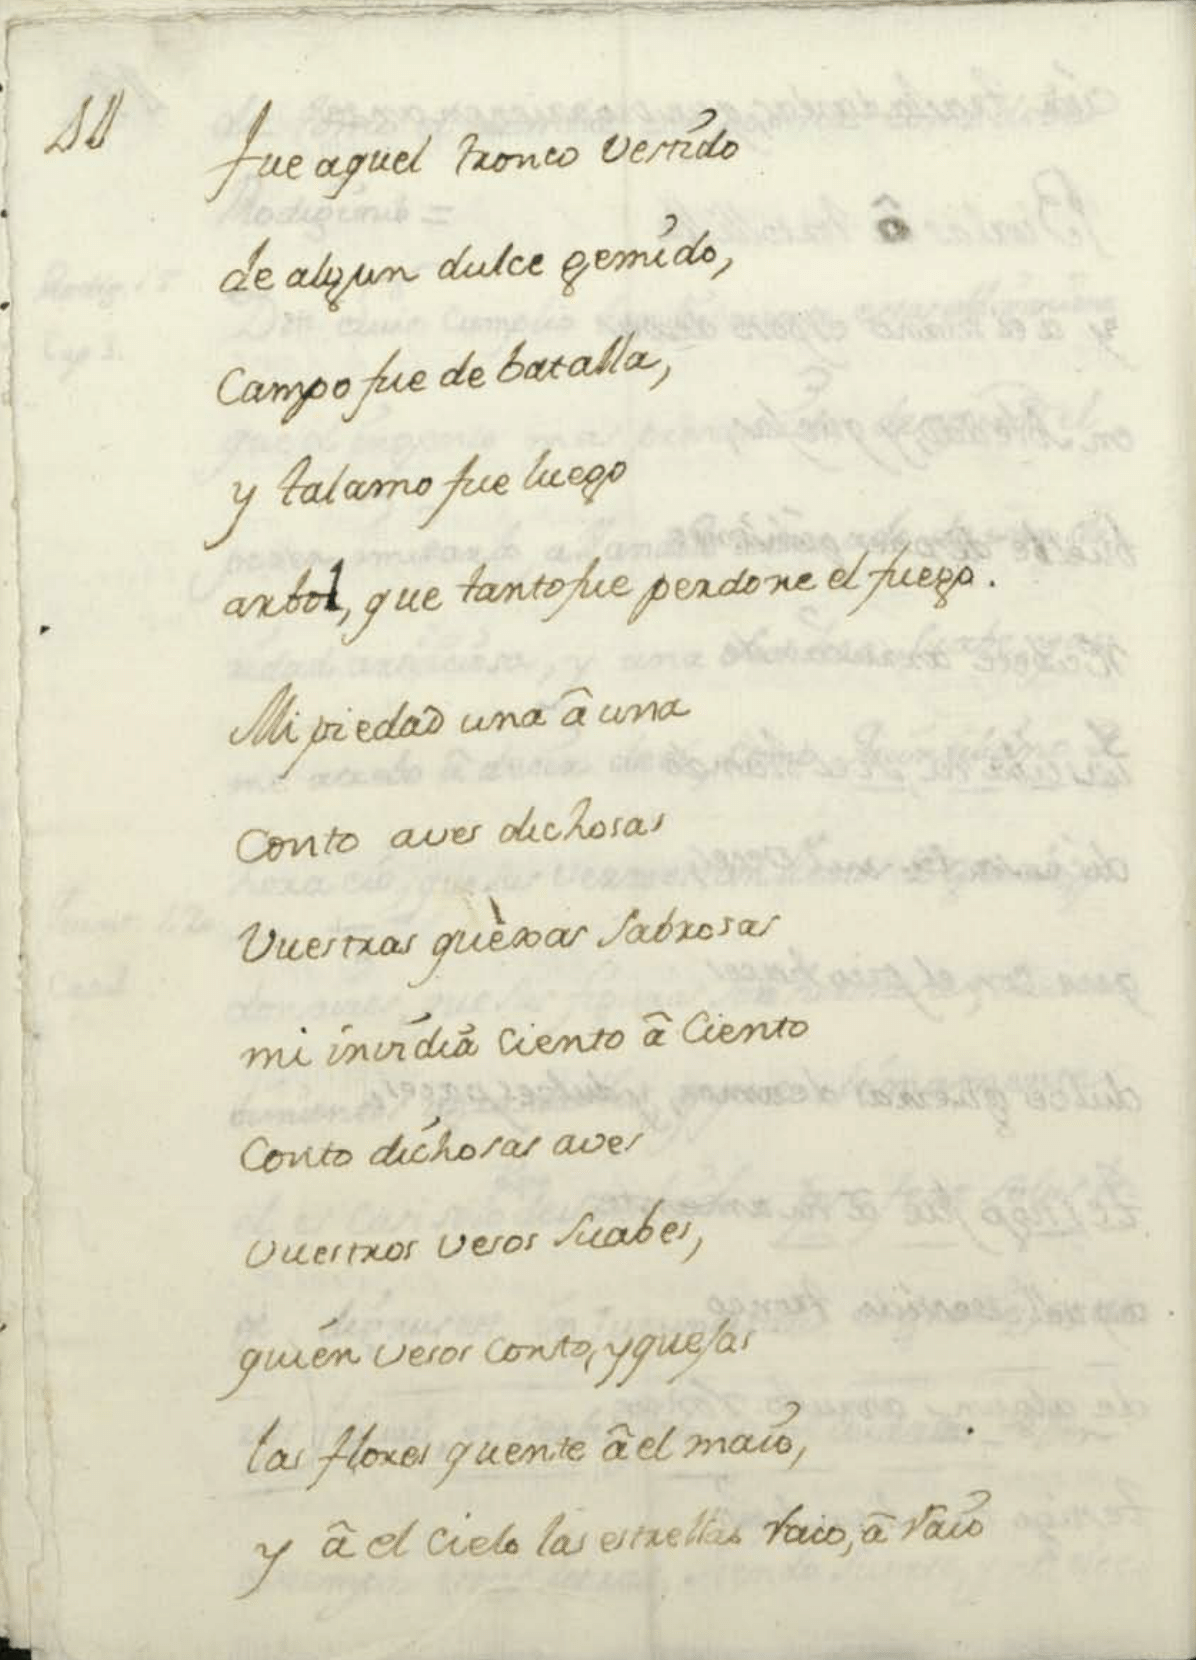 11
fue aquel tronco vestido
de algun dulce gemido,
Campo fue de batalla,
y talamo fue luego
arbol, que tanto fue perdone el fuego.
Mi piedad una â una
Conto aves dichosas
Vuestras quèxas sabrosas
mi invidia ciento â Ciento
Conto dichosas aves
Vuestros vesos suabes,
quien vesos conto, y quejas
las flores quente â el maio,
y â el Cielo las estrellas raio, â raio